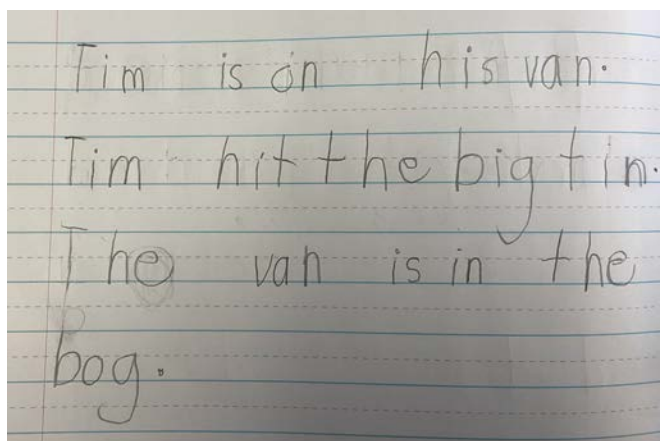 Tim is on his van.
Tim hit the big tin.
The van is in the
bog.